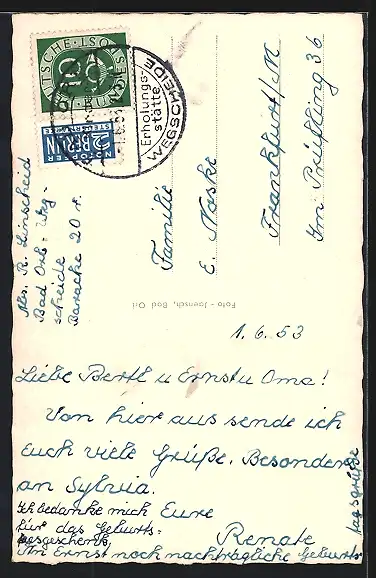 DEUTSCHE BUNDESPOST
10
NOTOPFER
2 BERLIN
STEUERMARKE
BAD ORB
Erholungs-
stätte
WEGSCHEIDE
Abs. R. Linscheid
Bad Orb - Weg-
scheide
Baracke 20 r.
Familie
E. Naske
Frankfurt/M
Im Prüfling 36
Foto - Jaensch, Bad Orb
1.6.53
Liebe Bertl u Ernst u Oma!
Von hier aus sende ich
euch viele Grüße. Besonders
an Sylvia.
Eure
Renate
Ich bedanke mich
für das Geburts-
tagsgeschenk.
An Ernst noch nachträgliche Geburts-
tagsgrüße